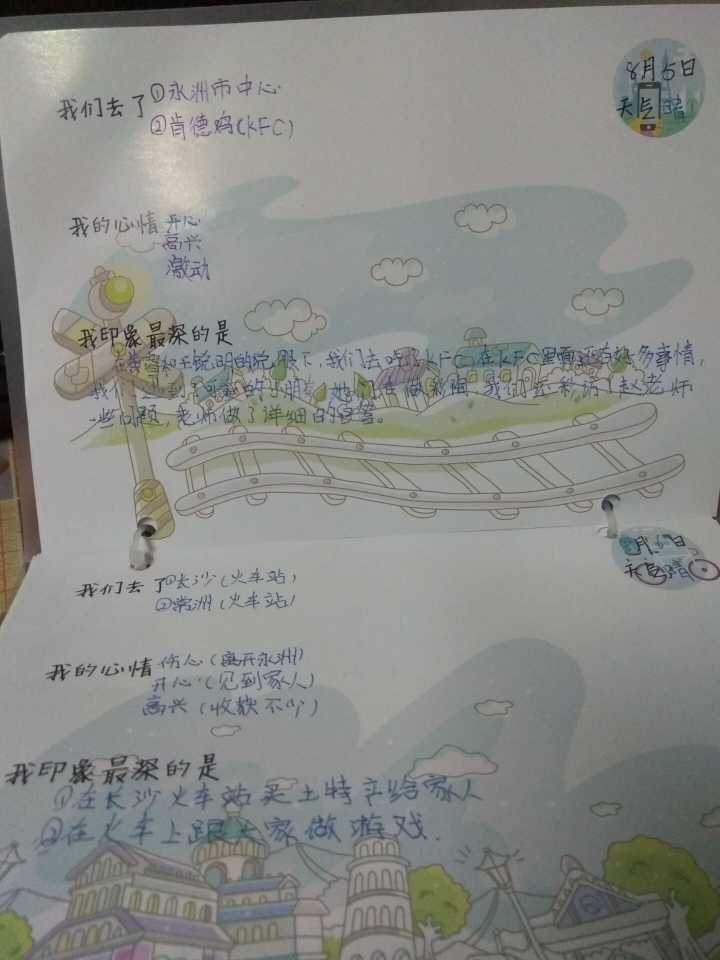 8月5日
天气晴
我们去了①永洲市中心
②肯德鸡(KFC)
我的心情 开心
高兴
激动
我印象最深的是
和王锐明的 下,我们去吃了KFC,在KFC里面还有好多事情,
我们 到了可爱的小朋 她们在做 我们还采访了赵老师
一些问题,老师做了详细的回答。
月6日
天气晴
我们去了①长沙(火车站)
②常洲(火车站)
我的心情 伤心(离开永洲)
开心(见到家人)
高兴(收获不少)
我印象最深的是
①在长沙火车站买土特产给家人
②在火车上跟大家做游戏.